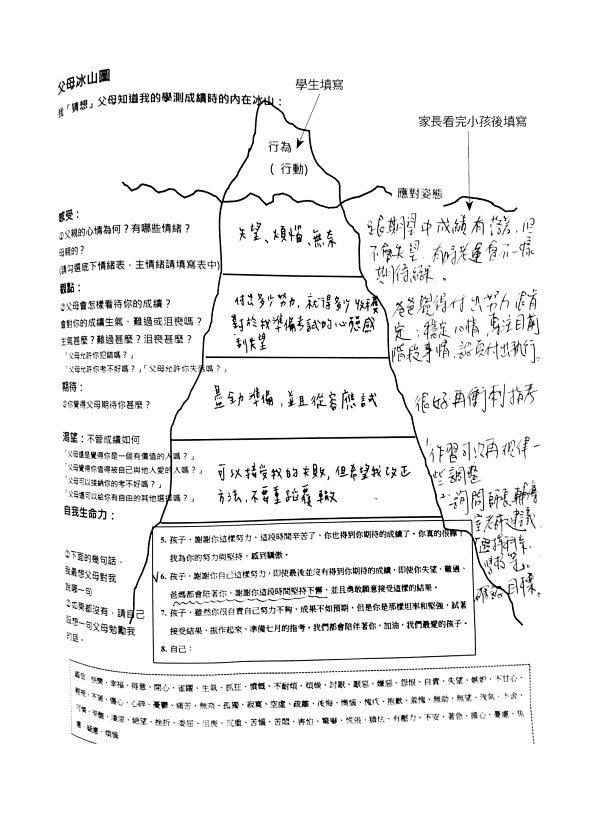 父母冰山圖
我「猜想」父母知道我的學測成績時的內在冰山：
學生填寫
家長看完小孩後填寫
行為
( 行動)
應對姿態
感受：
①父親的心情為何？有哪些情緒？
母親的？
(請勾選底下情緒表、主情緒請填寫表中)
失望、煩惱、無奈
跟期望中成績有落差，但
不會失望，有時老運會不一樣
期待
觀點：
②父母會怎樣看待你的成績？
會對你的成績生氣、難過或沮喪嗎？
生氣甚麼？難過甚麼？沮喪甚麼？
「父母允許你犯錯嗎？」
「父母允許你考不好嗎？」「父母允許你失落嗎？」
付出多少努力，就得多少收穫
對於我準備考試的心態感
到失望
爸爸覺得付出努力很肯
定：穩定心情，專注目前
階段事情，認真付出執行。
期待：
①你覺得父母期待你甚麼？
盡全力準備，並且從容應試
很好再衝刺指考
渴望：不管成績如何
「父母還是覺得你是一個有價值的人嗎？」
「父母覺得你值得被自己與他人愛的人嗎？」
「父母可以接納你的考不好嗎？」
「父母還可以給你有自由的其他選擇嗎？」
可以接受我的失敗，但希望我改正
方法，不要重蹈覆轍
作習可以再規律一
些調整
詢問師長輔導
室老師建議
目標。
自我生命力：
②下面的幾句話，
我最想父母對我
說哪一句
②如果都沒有，請自己
設想一句父母勉勵我
的話。
5. 孩子，謝謝你這樣努力，這段時間辛苦了，你也得到你期待的成績了，你真的很棒！
我為你的努力與堅持，感到驕傲。
√6. 孩子，謝謝你自己這樣努力，即使最後並沒有得到你期待的成績，即使你失望、難過，
爸媽都會陪著你，謝謝你這段時間堅持不懈，並且勇敢願意接受這樣的結果。
7. 孩子，雖然你很自責自己努力不夠，成果不如預期，但是你是那樣坦率和堅強，試著
接受結果，振作起來，準備七月的指考。我們都會陪伴著你，加油，我們最愛的孩子。
8. 自己：
感受，快樂、幸福、得意、開心、雀躍、生氣、抓狂、憤慨、不耐煩、煩燥、討厭、厭惡、嫌惡、怨恨、自責、失望、嫉妒、不甘心、
輕視、不滿、傷心、心碎、憂鬱、痛苦、無奈、孤獨、寂寞、空虛、疏離、後悔、懊惱、愧疚、抱歉、羞愧、無助、無望、洩氣、不捨、
可憐、悲慟、淒涼、絕望、挫折、委屈、沮喪、沉重、苦惱、苦悶、害怕、驚嚇、慌張、膽怯、有壓力、不安、著急、擔心、憂慮、焦
慮、疑慮、煩惱